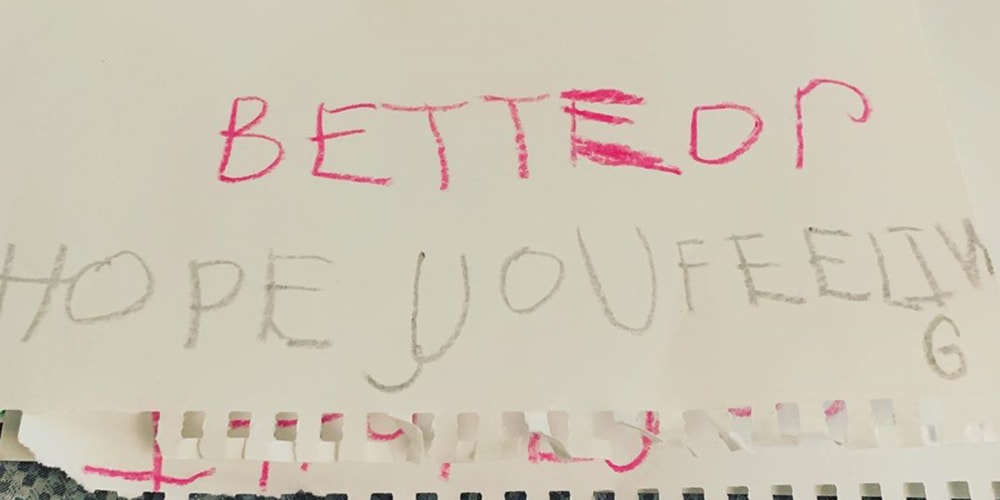 BETTEDr
HOPE YOU FEELIN
G